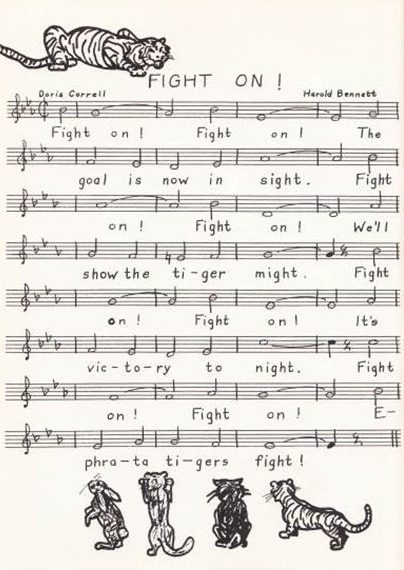 FIGHT ON!
Doris Correll Harold Bennett
Fight on! Fight on! The
goal is now in sight. Fight
on! Fight on! We'll
show the ti-ger might. Fight
on! Fight on! It's
vic-to-ry to night. Fight
on! Fight on! E-
phra-ta ti-gers fight!